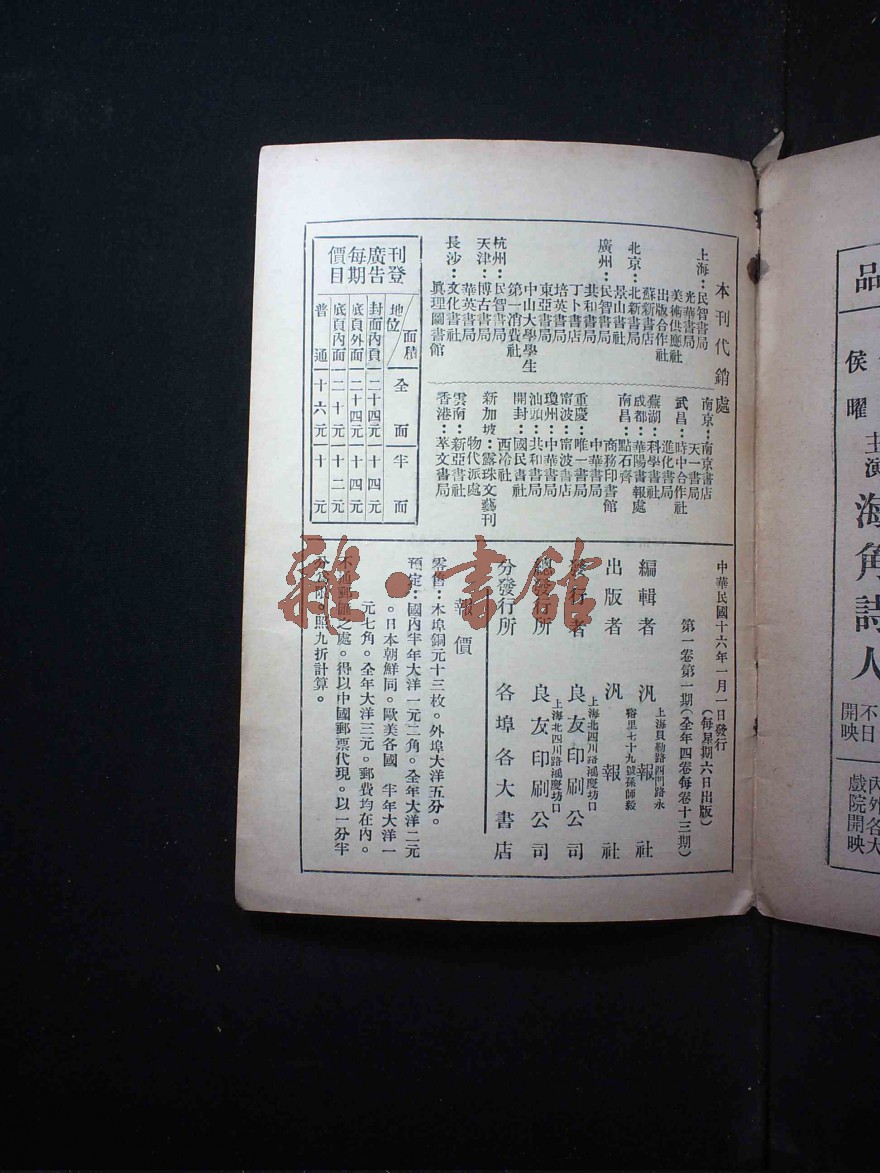 本刊代銷處
上海：民智書局
光華書局
美術供應社
出版合作社
蘇新書店
北京：北新書局
景山書社
廣州：民智書局
共和書局
丁卜書店
培英書局
東亞書局
中山大學學生
第一消費社
杭州：民智書局
天津：博古書局
華英書局
長沙：文化書社
眞理圖書館
南京：南京書店
天一書局
武昌：時中合作社
進化書局
蕪湖：科學書社
成都：華陽書報處
南昌：點石齊
商務印書館
中華書局
重慶：唯一書局
甯波：甯波書店
瓊州：中華書局
汕頭：共和書局
開封：國民書社
西冷社
新加坡：露珠文藝刊
物代派處
雲南：新亞書社
香港：萃文書局
刊登廣告每期價目
面積
地位
全面
半面
封面內頁
二十四元
十四元
底頁外面
二十四元
十四元
底頁內面
二十元
十二元
普通
十六元
十元
中華民國十六年一月一日發行
（每星期六日出版）
第一卷第一期（全年四卷每卷十三期）
編輯者 汎報社
上海貝勒路西門路永
裕里七十九號孫師毅
出版者 汎報社
上海北四川路鴻慶坊口
發行者 良友印刷公司
上海北四川路鴻慶坊口
總發行所 良友印刷公司
分發行所 各埠各大書店
報價
零售：本埠銅元十三枚。外埠大洋五分。
預定：國內半年大洋一元二角。全年大洋二元
。日本朝鮮同。歐美各國 半年大洋一
元七角。全年大洋三元。郵費均在內。
不通郵匯之處。得以中國郵票代現。以一分半
分爲限。照九折計算。
雜·書館
品
侯曜
主演
海角詩人
不日
開映
內外各大
戲院開映